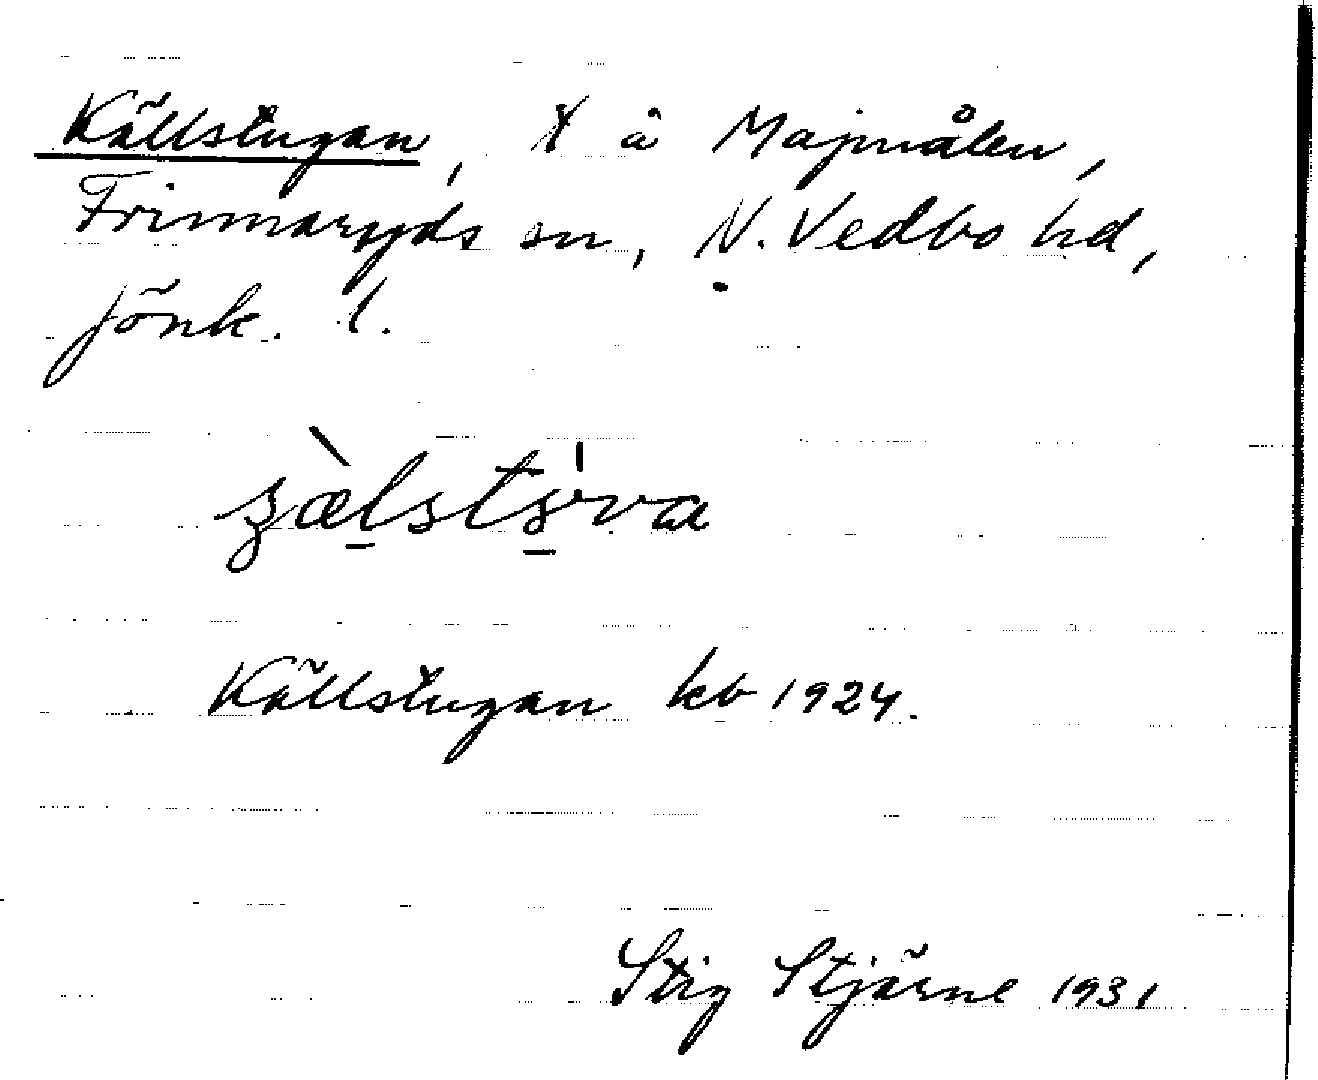 Källstugan, X å Majmålen,
Frinnaryds sn, N. Vedbo hd,
Jönk. l.
Källstugan kb 1924.
Stig Stjärne 1931